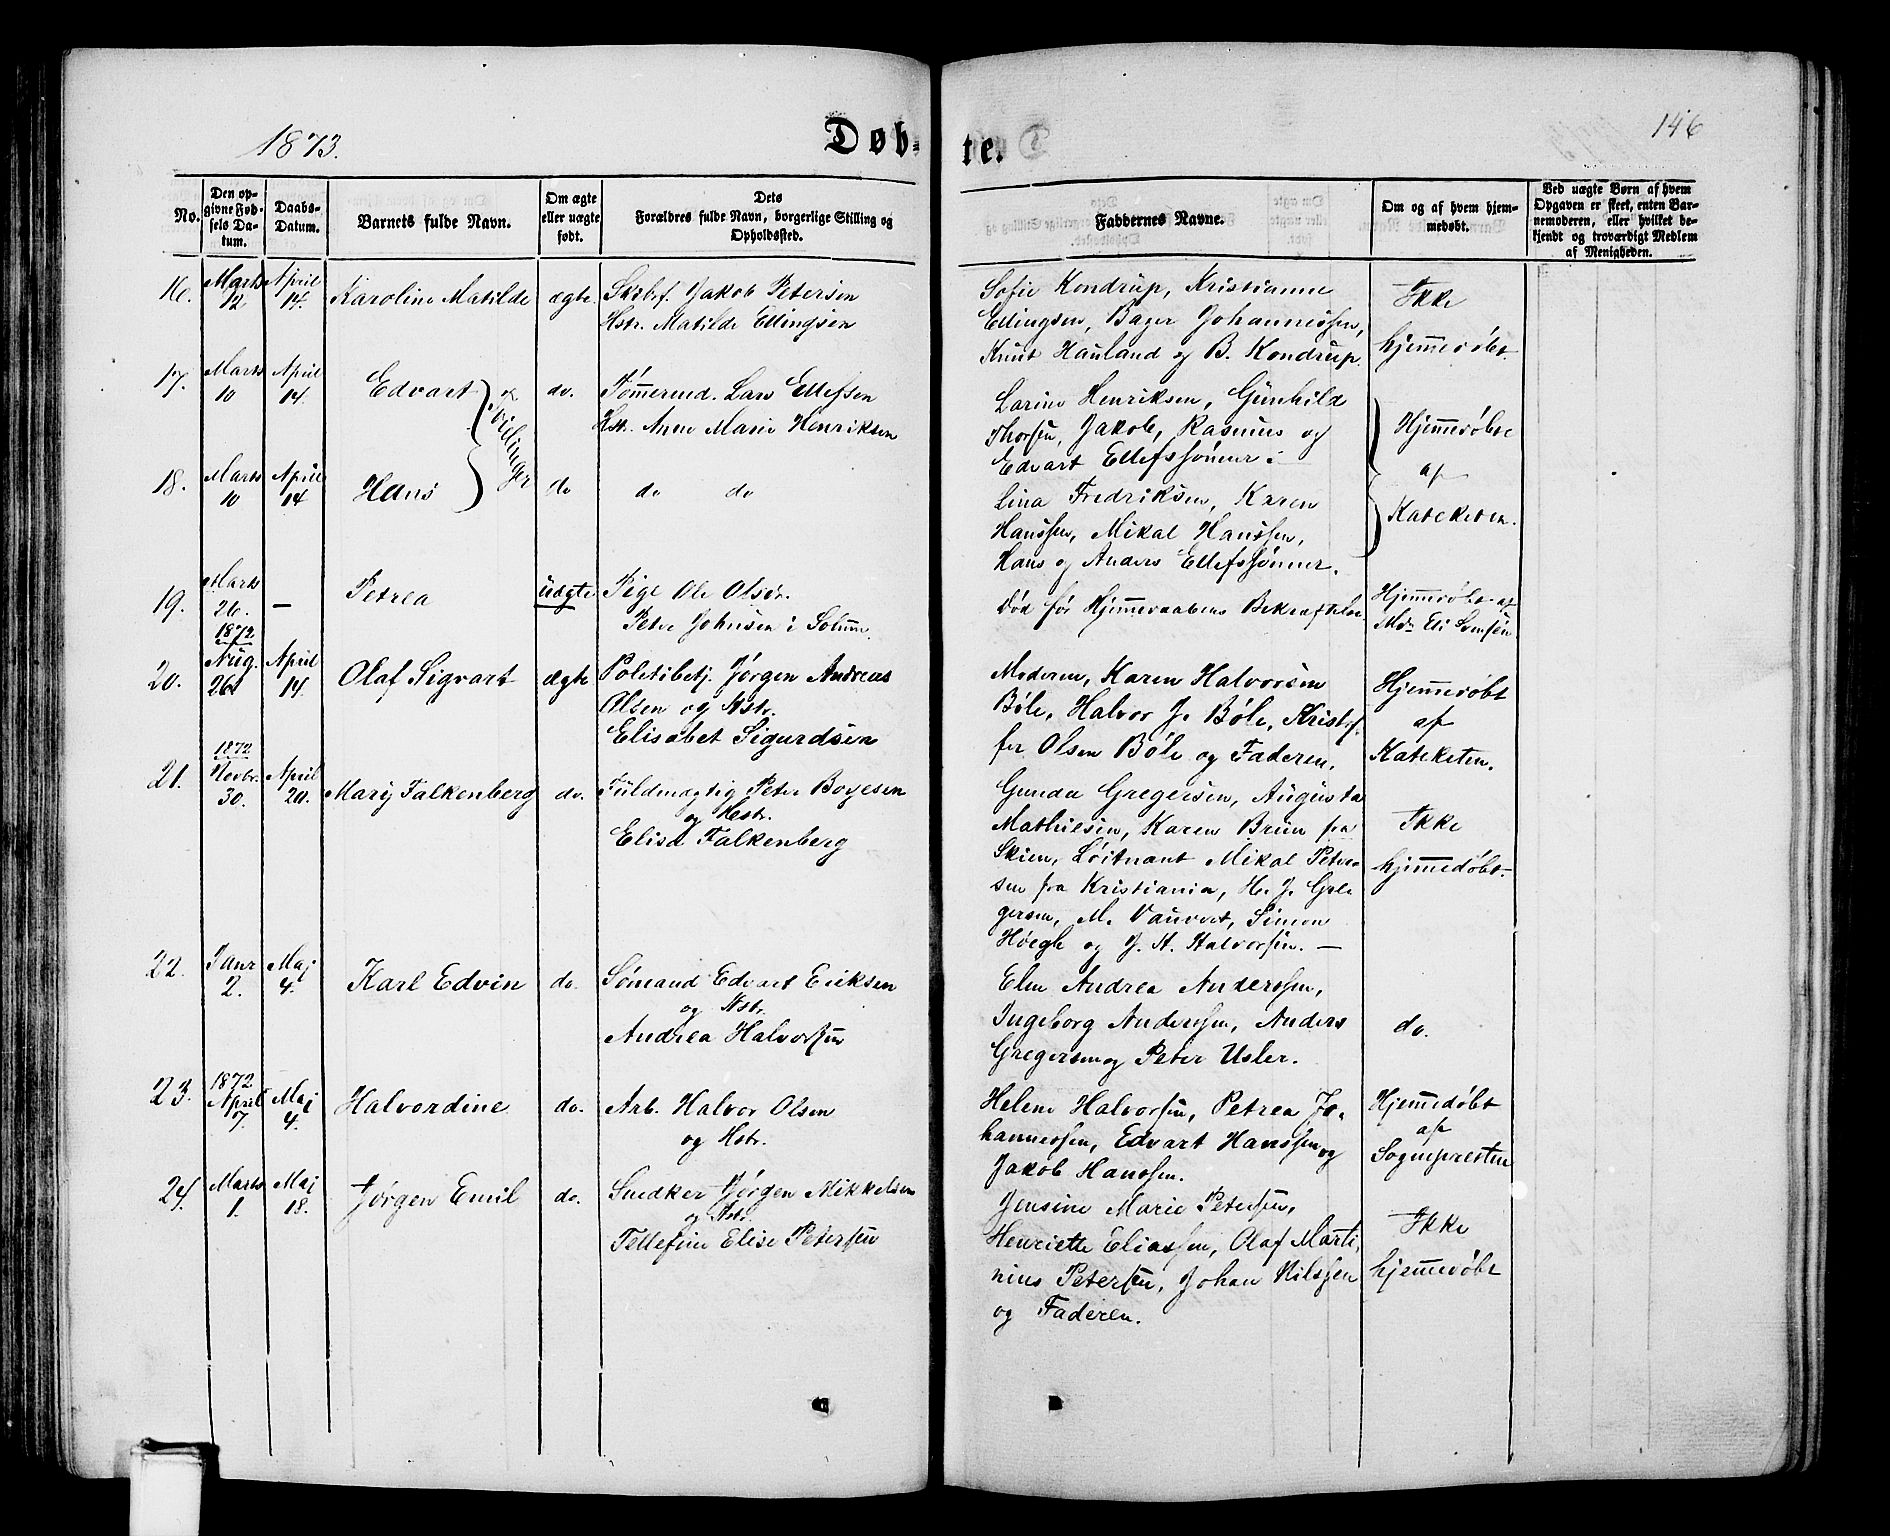 1873.
Døb-
te.
146
No.
Den op-
givne Fød-
sels Da-
tum.
Daabs-
Datum.
Barnets fulde Navn.
Om ægte
eller uægte
født.
Dets
Forældres fulde Navn, borgerlige Stilling og
Opholdssted.
Faddernes Navne.
Om og af hvem hjem-
medøbt.
Ved uægte Børn af hvem
Opgaven er skeet, enten Bar-
nemoderen, eller hvilket be-
kjendt og troværdigt Medlem
af Menigheden.
16. Marts 12 April 14. Karoline Matilde ægte. Skibsf. Jakob Petersen
Hstr. Matilde Ellingsen
Sofie Kondrup, Kristianne
Ellingsen, Johannessen,
Knut Hauland og B. Kondrup.
Ikke
hjemmedøbt.
17. Marts 10 April 14. Edvart do. Tømmermd. Lars Ellefsen
Hstr. Anne Marie Henriksen
Tvillinger
Larine Henriksen, Gunhild
Thorsen, Jakob, Rasmus og
Edvart Ellefssønner:
Hjemmedøbte
af
Kateketen.
18. Marts 10 April 14 Hans do do do
Lina Fredriksen, Karen
Hanssen, Mikal Hanssen,
Hans og Anders Ellefssønner.
19. Marts 26. — Petrea uægte Pige Ole Olsdr.
Peter Johnsen i Solum.
Død før Hjemmedaabens Bekræftelse.
Hjemmedøbt af
Mdm Eli Svensen
20. 1872 Aug. 26 April 14. Olaf Sigvart ægte Politibetj. Jørgen Andreas
Olsen og Hstr.
Elisabet Sigurdsen
Moderen, Karen Halvorsen
Bøle, Halvor J. Bøle, Kristof-
fer Olsen Bøle og Faderen.
Hjemmedøbt
af
Kateketen.
21. 1872 Novbr. 30. April 20. Mary Falkenberg do. Fuldmægtig Peter Boyesen
og Hstr.
Elisa Falkenberg
Gunda Gregersen, Augusta
Mathiesen, Karen Brun fra
Skien, Løitnant Mikal Peter-
sen fra Kristiania, H. J. Gre-
gersen, M. Simon
Høegh og J. A. Halvorsen. —
Ikke
hjemmedøbt.
22. Janr 2. Maj 4. Karl Edvin do. Sømand Edvart Eriksen
og Hstr.
Andrea Halvorsen
Elen Andrea Anderssen,
Ingeborg Anderssen, Anders
Gregersen og Peter Usler.
do.
23. 1872 April 7. Maj 4. Halvordine do. Arb. Halvor Olsen
og Hstr.
Helene Halvorsen, Petrea Jo-
hannessen, Edvart Hanssen og
Jakob Hanssen.
Hjemmedøbt
af
Sognepresten
24. Marts 1. Maj 18. Jørgen Emil do. Snedker Jørgen Mikkelsen
og Hstr.
Tellefine Elise Petersen
Jensine Marie Petersen,
Henriette Eliassen, Olaf Marti-
nius Petersen, Johan Nilssen
og Faderen.
Ikke
hjemmedøbt